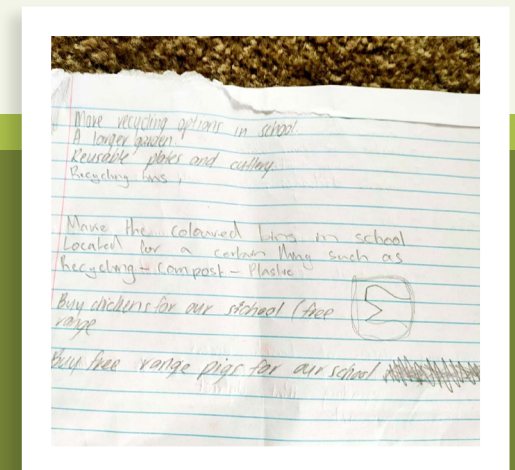 More recycling options in school
A larger garden
Reusable plates and cutlery
Recycling bins
Make the coloured bins in school
Located for a certain thing such as
Recycling - Compost - Plastic
Buy chickens for our school (free
range
Buy free range pigs for our school